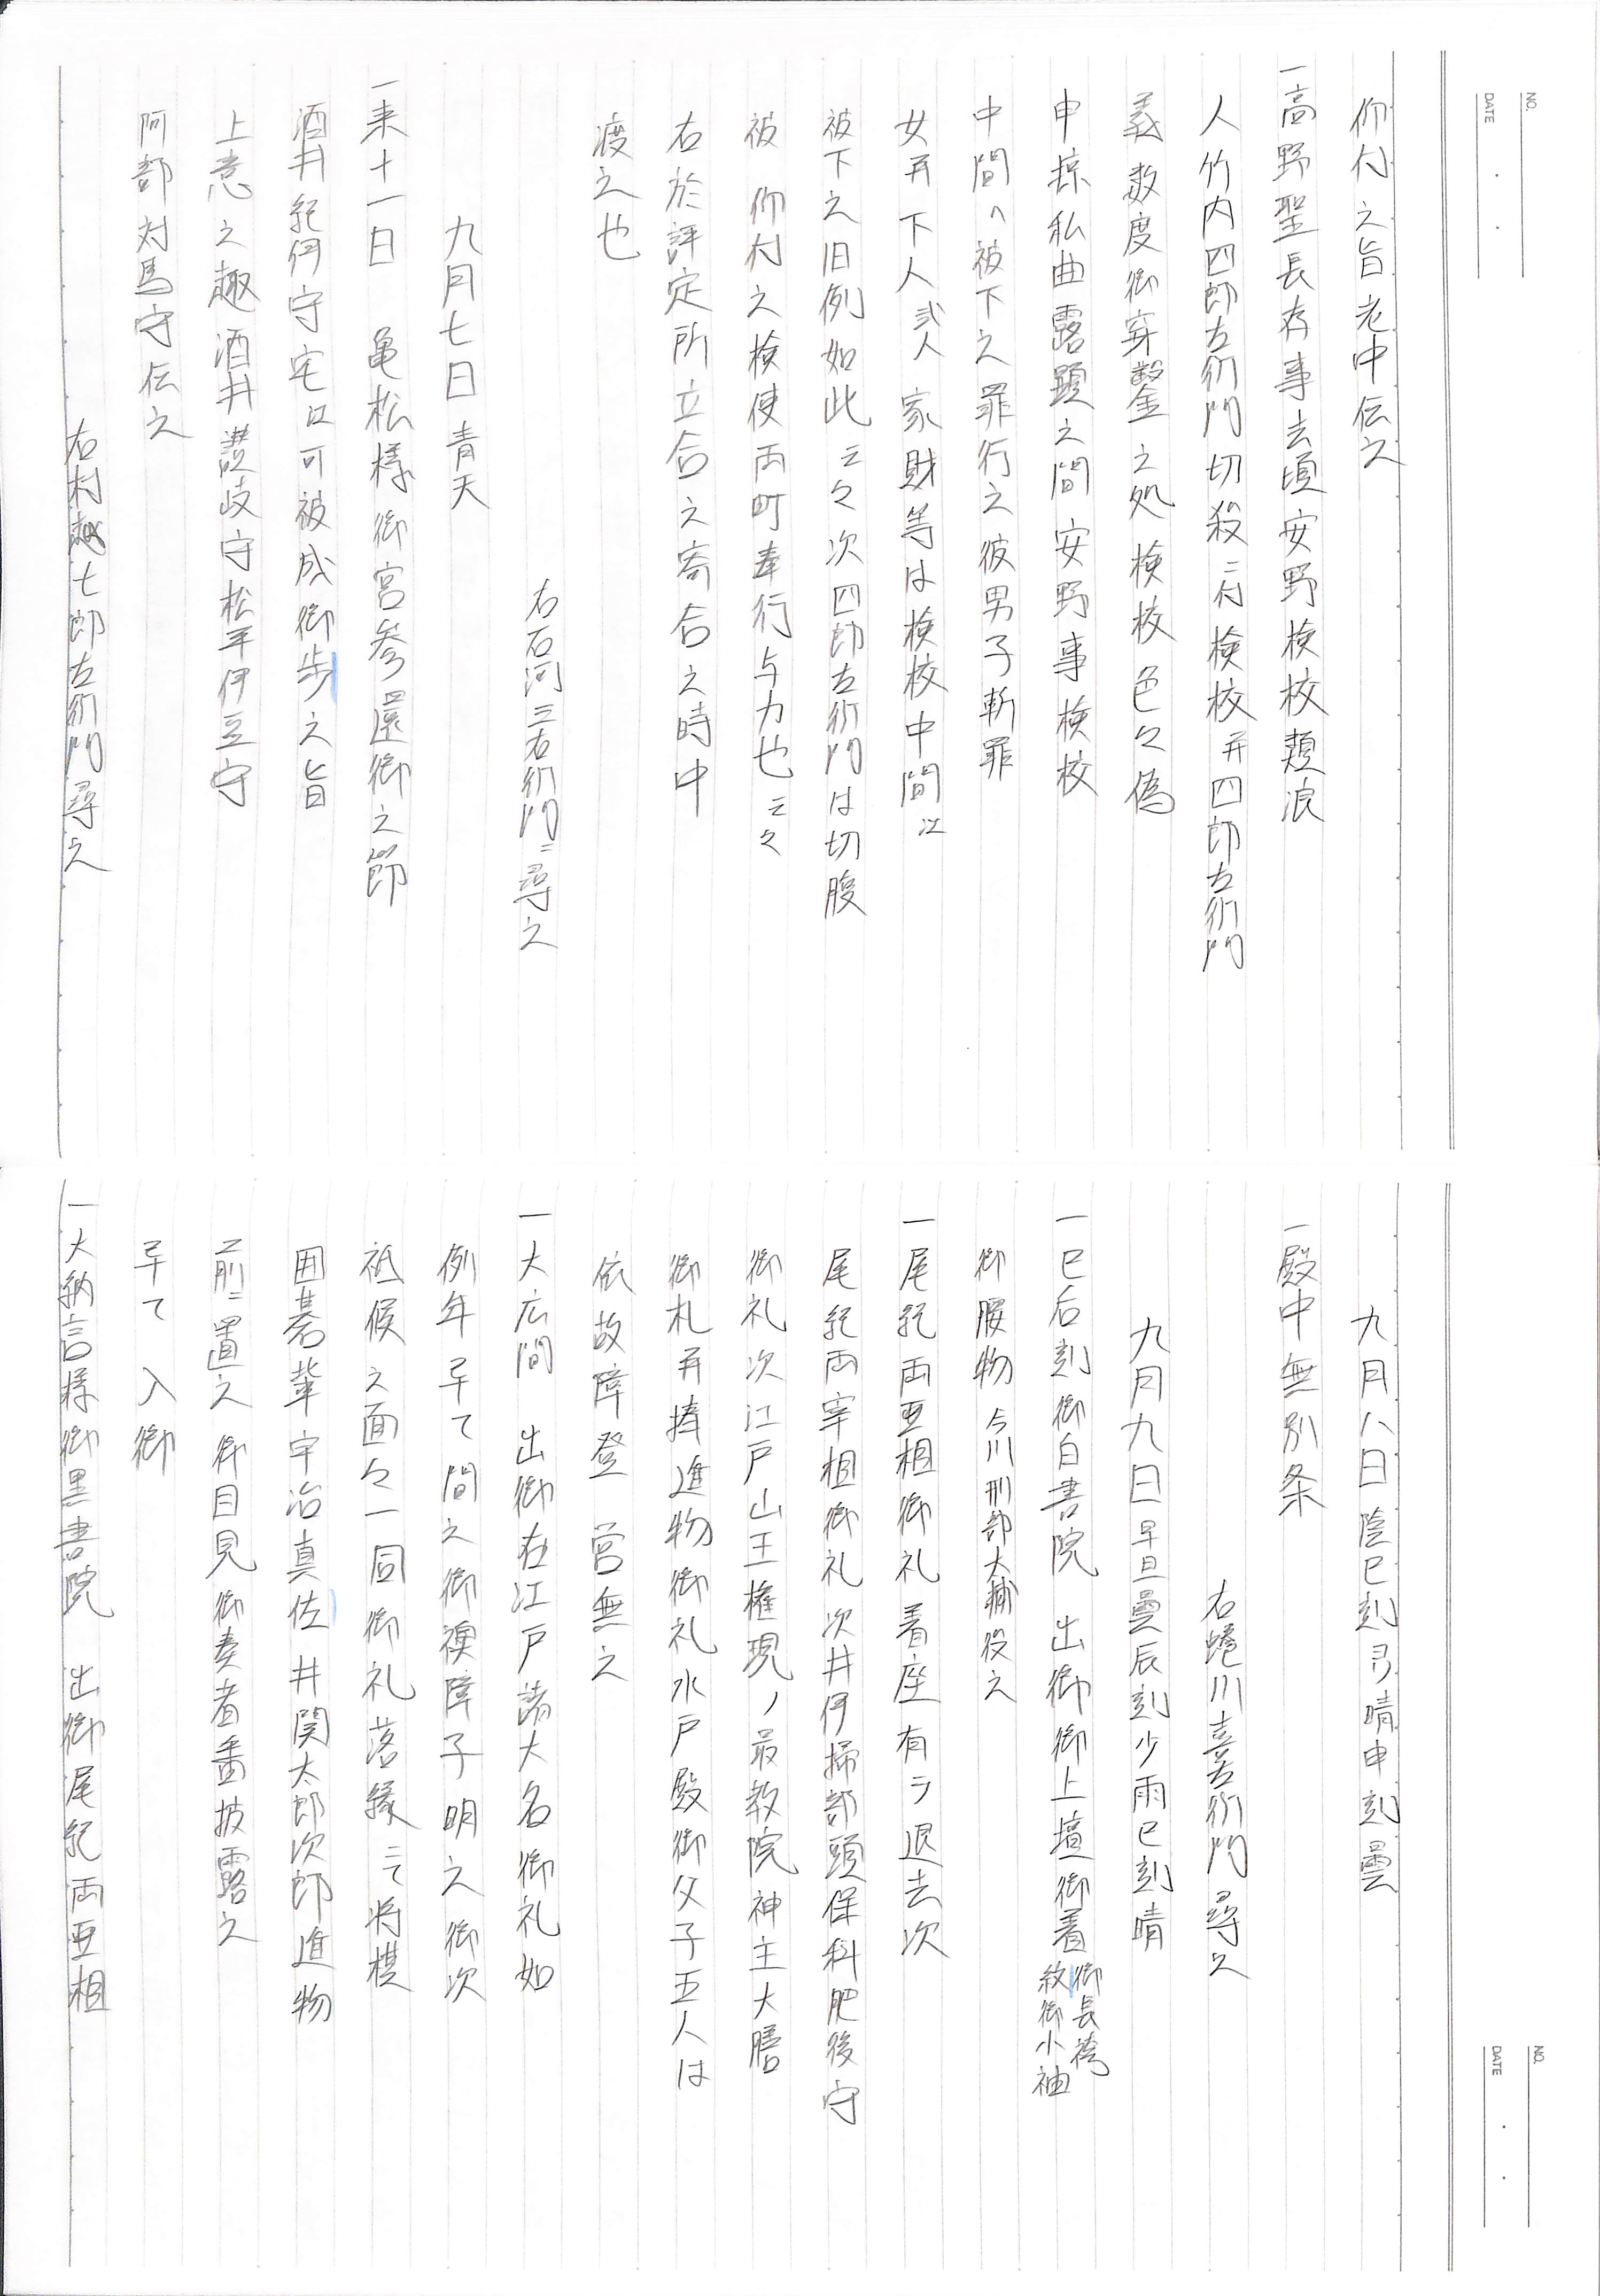 NO.
DATE
仰付之旨老中伝之
一高野聖長存事去頃安野検校類浪
人竹内四郎左衛門切殺ニ付検校并四郎左衛門
義数度御穿鑿之処検校色々偽
申掠私曲露顕之間安野事検校
中間へ被下之罪行之彼男子斬罪
女并下人弐人家財等は検校中間江
被下之旧例如此云々次四郎左衛門は切腹
被 仰付之検使両町奉行与力也云々
右於評定所立合之寄合之時中
渡之也
右石河三右衛門ニ尋之
九月七日青天
一来十一日 亀松様御宮参還御之節
酒井紀伊守宅口可被成御歩之旨
上意之趣酒井讃岐守松平伊豆守
阿部対馬守伝之
右村越七郎左衛門尋之
NO.
DATE
九月八日陰巳刻ヨリ晴申刻曇
一殿中無別条
右蜷川喜左衛門尋之
九月九日早旦曇辰刻少雨巳刻晴
一巳后刻御白書院 出御御上壇御着御長袴紋御小袖
御腰物今川刑部大輔役之
一尾紀両亜相御礼着座有ラ退去次
尾紀両宰相御礼次井伊掃部頭保科肥後守
御礼次江戸山王権現ノ最教院神主大膳
御札并捧進物御礼水戸殿御父子五人は
依故障登 営無之
一大広間 出御在江戸諸大名御礼如
例年畢て間之御襖障子明之御次
祗候之面々一同御礼落縁ニて将棋
囲碁輩宇治真佐井関太郎次郎進物
前ニ置之御目見御奏者番披露之
畢て入御
一大納言様御黒書院 出御尾紀両亜相